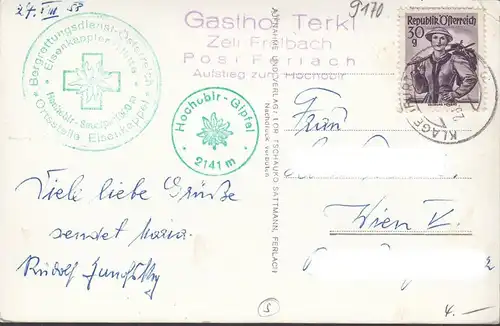 27. VIII 58
Bergrettungsdienst-Österreich
Eisenkappler Hütte
Hochobir-
Ortsstelle Eisenkappel
Gasthof Terkl
Zell Freibach
Post Ferlach
Aufstieg zum Hochobir
9170
Republik Österreich
30
g
KLAGENFURT
Hochobir-Gipfel
2141 m
AUFNAHME UND VERLAG: LOR TSCHAUKO SATTMANN, FERLACH
Nachdruck verboten
Frau
Wien V.
Viele liebe Grüße
sendet Maria.
Rudolf
5
4.-